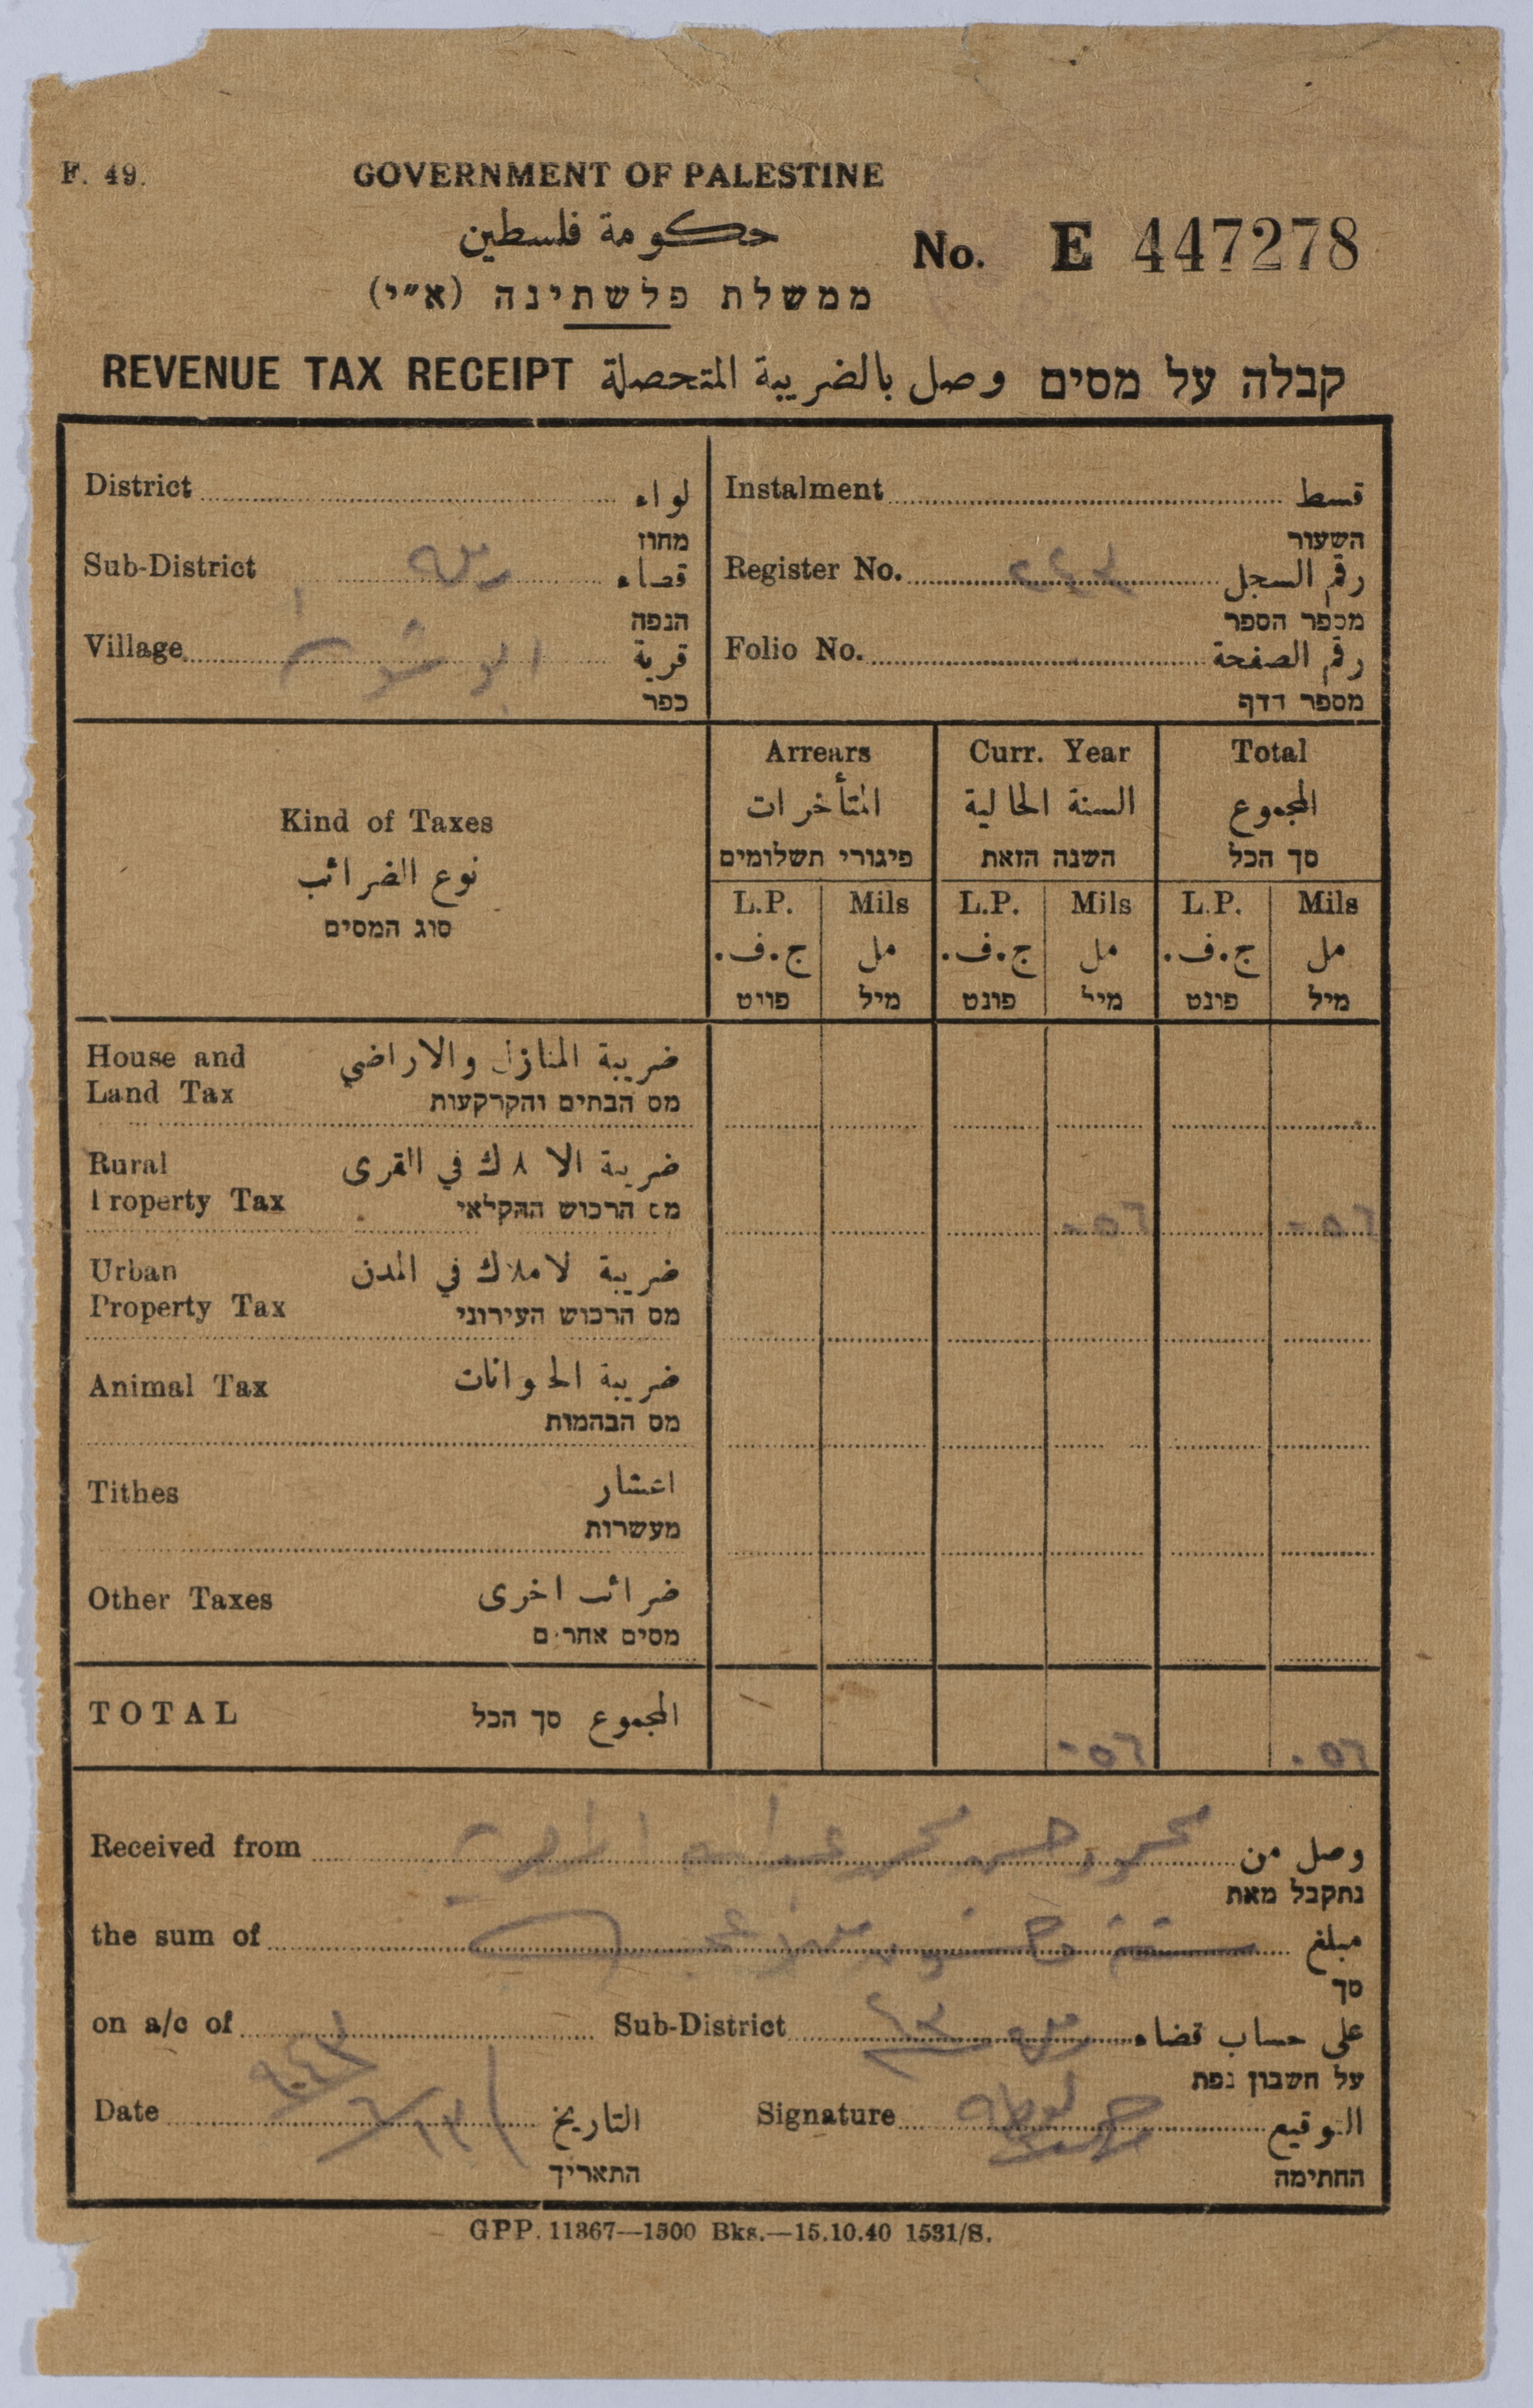 F. 49.
GOVERNMENT OF PALESTINE
حكومة فلسطين
No. E 447278
ממשלת פלשתינה (א״י)
REVENUE TAX RECEIPT وصل بالضريبة المتحصلة קבלה על מסים
District لواء
מחוז
Sub-District رملة قضاء
הנפה
Village ابو شوشة قرية
כפר
Instalment قسط
השעור
Register No. رقم السجل
מספר הספר
Folio No. رقم الصفحة
מספר הדף
Kind of Taxes
نوع الضرائب
סוג המסים
Arrears Curr. Year Total
المتأخرات السنة الحالية المجموع
פיגורי תשלומים השנה הזאת סך הכל
L.P. Mils L.P. Mils L.P. Mils
ج.ف. مل ج.ف. مل ج.ف. مل
פונט מיל פונט מיל פונט מיל
House and ضريبة المنازل والاراضي
Land Tax מס הבתים והקרקעות
Rural ضريبة الاملاك في القرى
Property Tax מס הרכוש החקלאי ٠٥٦ ٠٥٦
Urban ضريبة الاملاك في المدن
Property Tax מס הרכוש העירוני
Animal Tax ضريبة الحيوانات
מס הבהמות
Tithes اعشار
מעשרות
Other Taxes ضرائب اخرى
מסים אחרים
TOTAL סך הכל المجموع ٠٥٦ ٠٥٦
Received from محمود حسن محمد وصل من
נתקבל מאת
the sum of ستة وخمسون مبلغ
סך
on a/c of Sub-District رملة على حساب قضاء
על חשבון נפת
Date التاريخ Signature التوقيع
התאריך החתימה
GPP. 11367—1500 Bks.—15.10.40 1531/S.